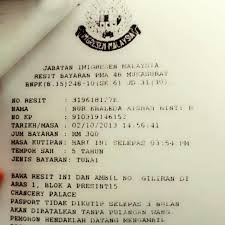 JABATAN IMIGRESEN MALAYSIA
RESIT BAYARAN PMA 48 MUKASURAT
NO RESIT :
NUR KHALEEDA AISHAH BINTI
NO KP :
TARIKH/MASA : 02/10/2013 14:56:41
JUM BAYARAN : RM 300
MASA KUTIPAN: HARI INI SELEPAS 03:54 PM
TEMPOH SAH : 5 TAHUN
JENIS BAYARAN: TUNAI
BAWA RESIT INI DAN AMBIL NO. GILIRAN DI
ARAS 1, BLOK A PRESINT15
CHANCERY PALACE
PASPORT TIDAK DIKUTIP SELEPAS 3 BULAN
AKAN DIBATALKAN TANPA PULANGAN WANG.
PEMOHON HENDAKLAH DATANG MENGAMBIL